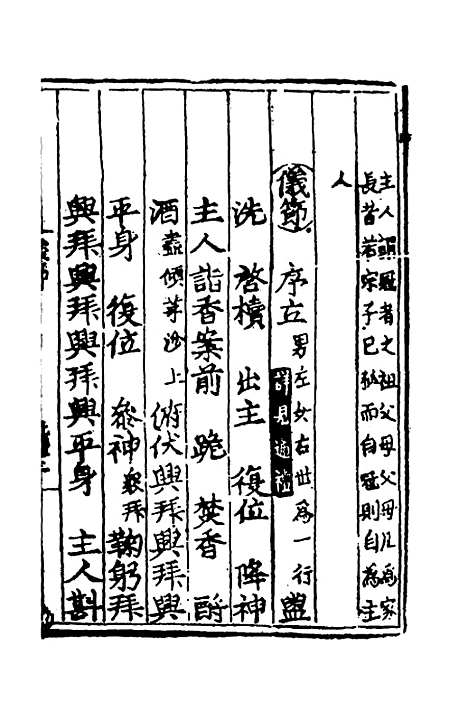 主人謂冠者之祖父母父母凡為家
長者若宗子已孤而自冠則自為主
人
儀節 序立男左女右世為一行詳見通禮 盥
洗 啓櫝 出主 復位 降神
主人詣香案前 跪 焚香 酹
酒盡傾茅沙上 俯伏興拜興拜興
平身 復位 參神衆拜 鞠躬拜
興拜興拜興拜興平身 主人斟